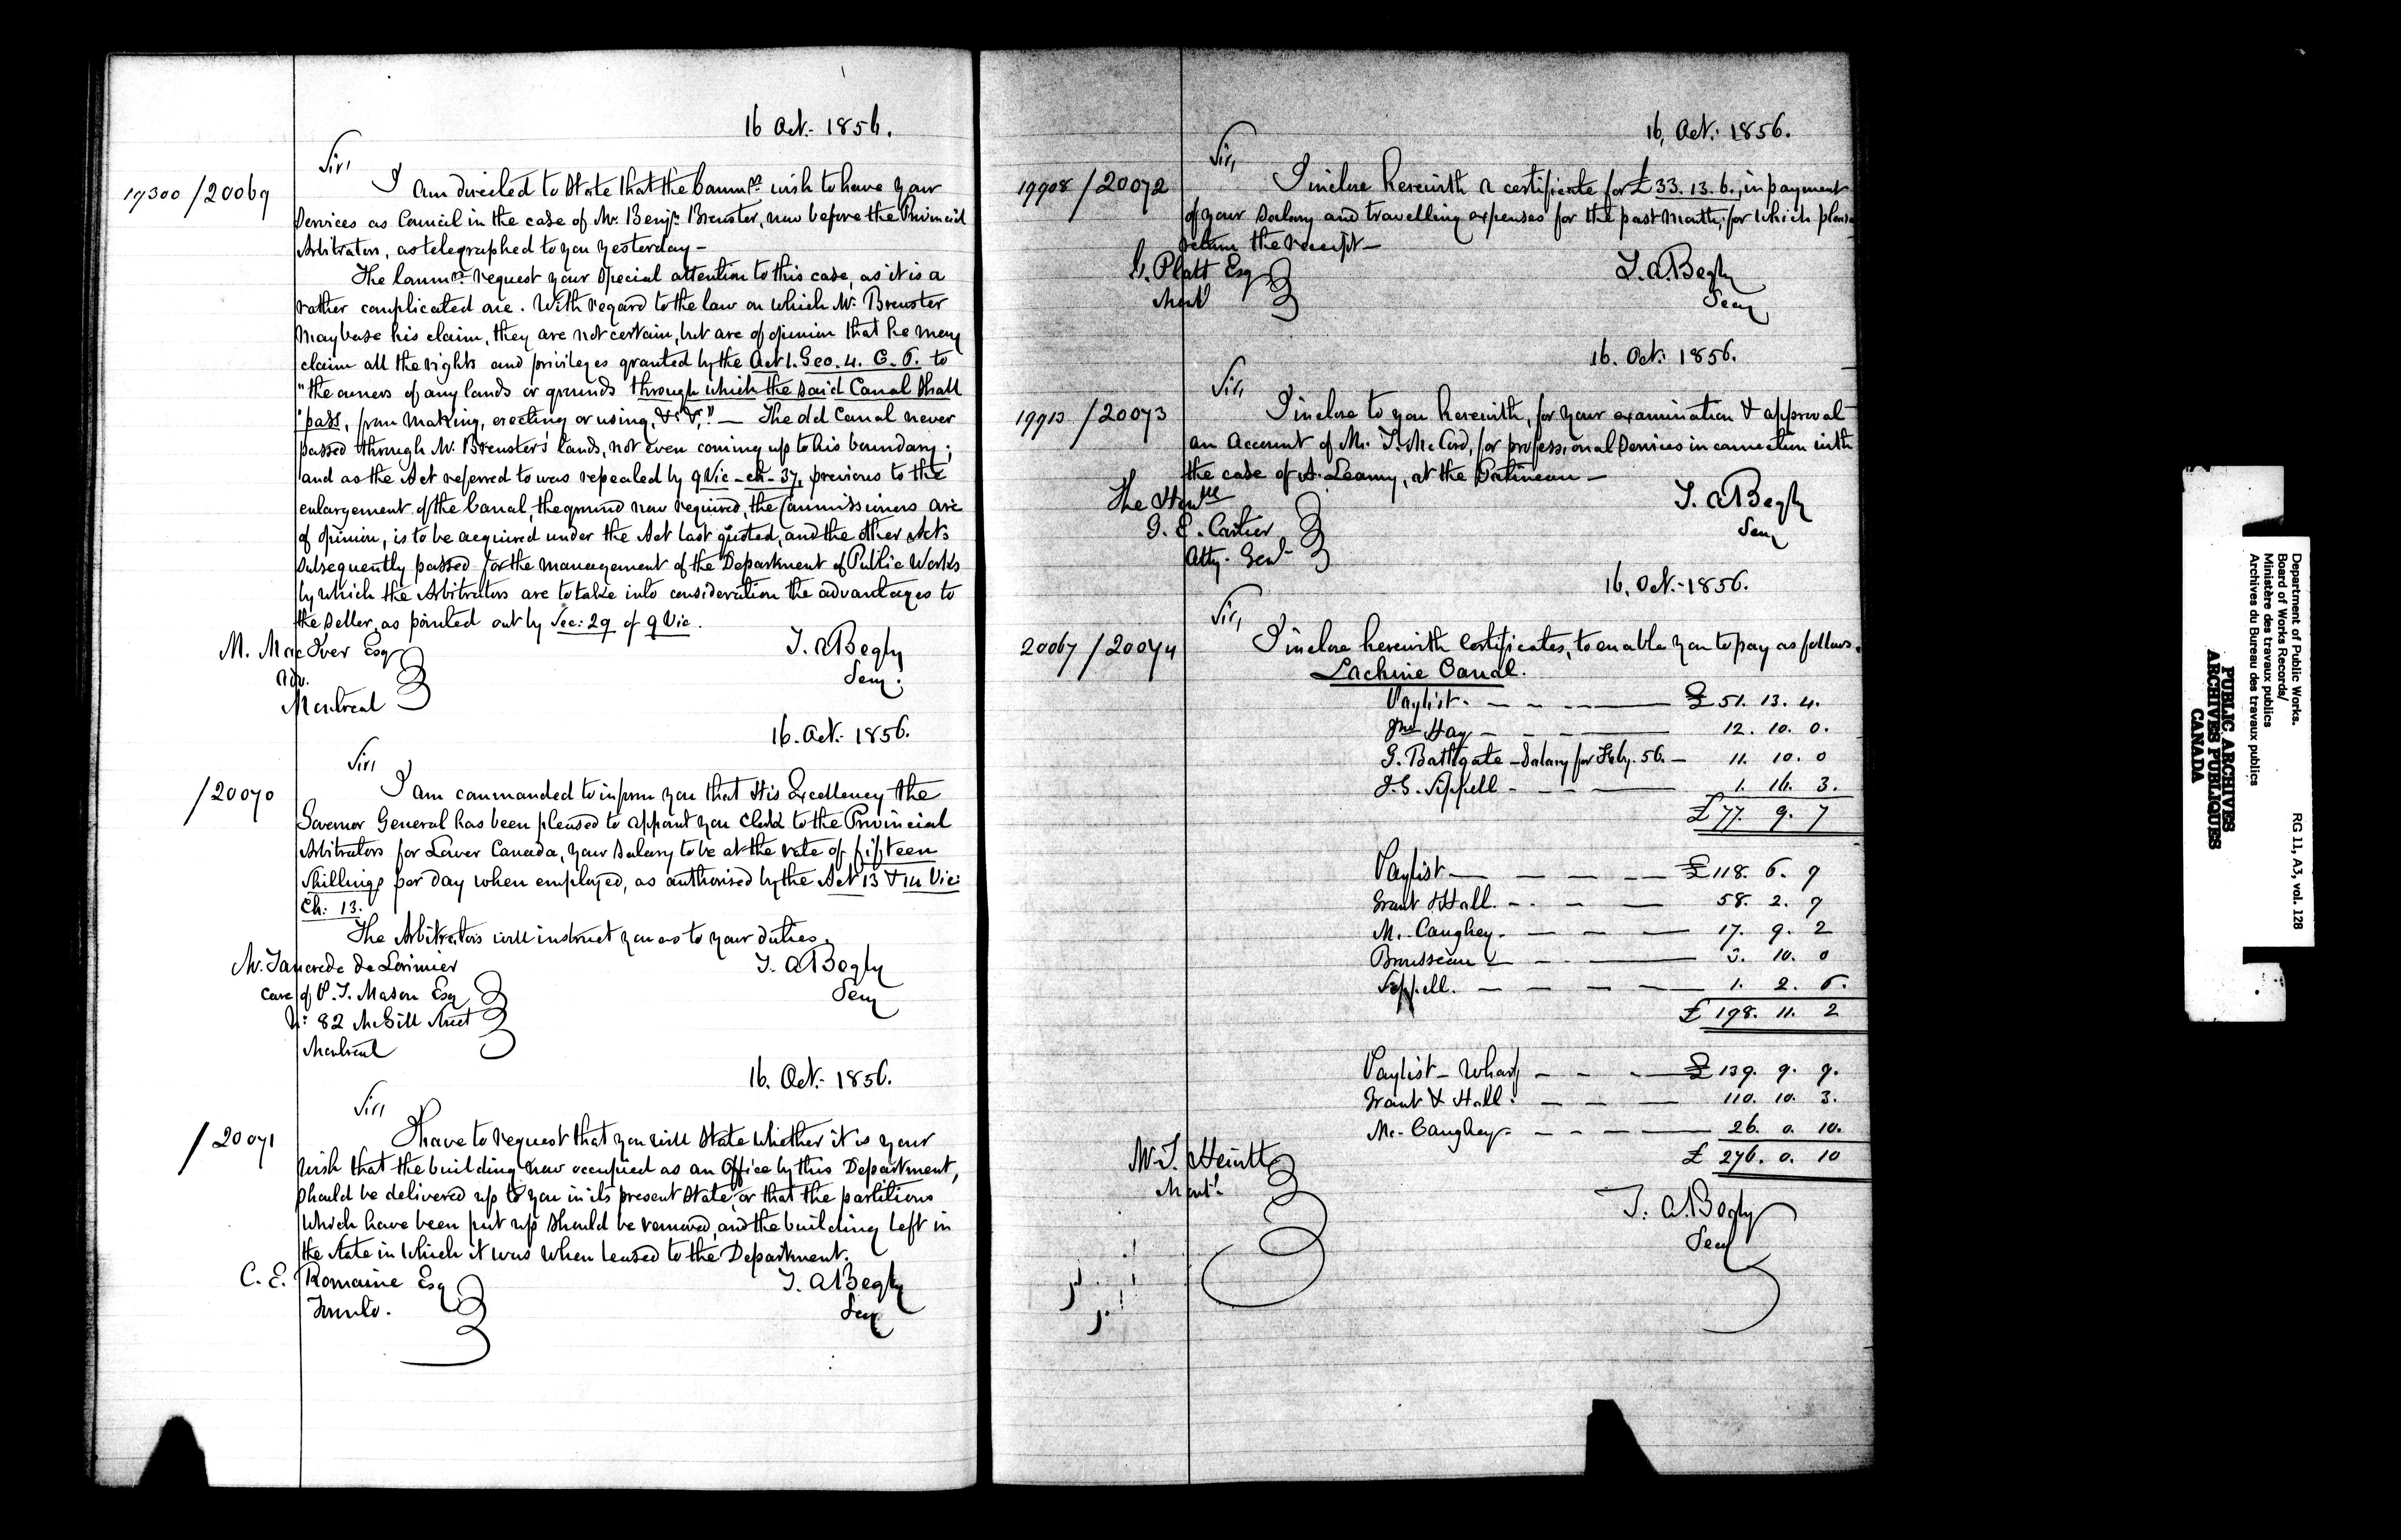 16 Oct:- 1856.
Sir,
19300 / 20069
I am directed to state that the Commrs. wish to have your
services as Council in the case of Mr. Benjn. Brewster, now before the Provincial
Arbitrators, as telegraphed to you yesterday -
The Commrs. request your special attention to this case, as it is a
rather complicated one. With regard to the law on which Mr. Brewster
may base his claim, they are not certain, but are of opinion that he may
claim all the rights and privileges granted by the Act 1. Geo. 4. C. 6. to
"the owners of any lands or grounds through which the said Canal shall
"pass, from making, erecting or using, &c &c," — The old Canal never
passed through Mr. Brewster's lands, not even coming up to his boundary;
and as the Act referred to was repealed by 9 Vic - ch - 37, previous to the
enlargement of the Canal, the ground now required, the Commissioners are
of opinion, is to be acquired under the Act last quoted, and the other Acts
subsequently passed for the management of the Department of Public Works
by which the Arbitrators are to take into consideration the advantages to
the seller, as pointed out by Sec: 29 of 9 Vic.
M. MacIver Esq
Adv.
Montreal
T. A Begly
Secy.
16. Oct:- 1856.
Sir,
/ 20070
I am commanded to inform you that His Excellency the
Governor General has been pleased to appoint you Clerk to the Provincial
Arbitrators for Lower Canada, your salary to be at the rate of fifteen
shillings per day when employed, as authorised by the Act 13 & 14 Vic:
Ch: 13.
The Arbitrators will instruct you as to your duties.
Mr. Tancrede de Lorimier
care of P. T. Mason Esq
No: 82 McGill Street
Montreal
T. A Begly
Secy
16. Oct:- 1856.
Sir,
/ 20071
I have to request that you will state whether it is your
wish that the building now occupied as an Office by this Department,
should be delivered up to you in its present state, or that the partitions
which have been put up should be removed, and the building left in
the state in which it was when leased to the Department.
C. E. Romaine Esq
Toronto.
T. A Begly
Secy
16, Oct: 1856.
Sir,
19908 / 20072
I inclose herewith a certificate for £33. 13. 6., in payment
of your salary and travelling expenses for the past month, for which please
return the receipt —
G. Platt Esq
Montl
T. A. Begly
Secy
16. Oct: 1856.
Sir,
19913 / 20073
I inclose to you herewith, for your examination & approval
an Account of Mr. T. McCord, for professional services in connection with
the case of A. Leamy, at the Gatineau —
The Honble
G. E. Cartier
Atty. Genl
T. A Begly
Secy
16. Oct:- 1856.
Sir,
20067 / 20074
I inclose herewith Certificates, to enable you to pay as follows.
Lachine Canal.
Paylist. — £ 51. 13. 4.
Jno Hay — 12. 10. 0.
G. Bathgate - Salary for Feby. 56. — 11. 10. 0
J. G. Sippell — 1. 16. 3.
£ 77. 9. 7
Paylist — £ 118. 6. 9
Grant & Hall. — 58. 2. 9
Mc. Caughey. — 17. 9. 2
Brousseau — 3. 10. 0
Sippell. — 1. 2. 6.
£ 198. 11. 2
Paylist - Wharf — £ 139. 9. 9.
Grant & Hall. — 110. 10. 3.
Mc. Caughey — 26. 0. 10.
£ 276. 0. 10
T. A. Begly
Secy
Department of Public Works.
Board of Works Records/
Ministère des travaux publics
Archives du Bureau des travaux publics
RG 11, A3, vol. 128
PUBLIC ARCHIVES
ARCHIVES PUBLIQUES
CANADA